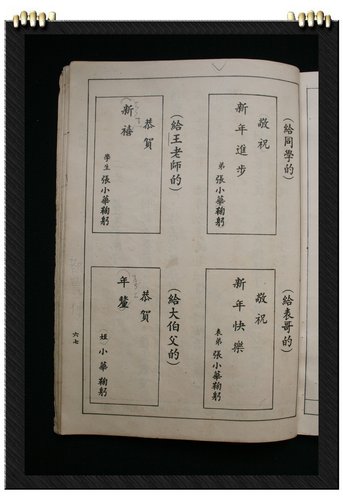 (給同學的)
敬祝
新年進步
弟 張小華鞠躬
(給王老師的)
恭賀
新禧
學生 張小華鞠躬
(給表哥的)
敬祝
新年快樂
表弟 張小華鞠躬
(給大伯父的)
恭賀
年釐
姪 小華 鞠躬
六七